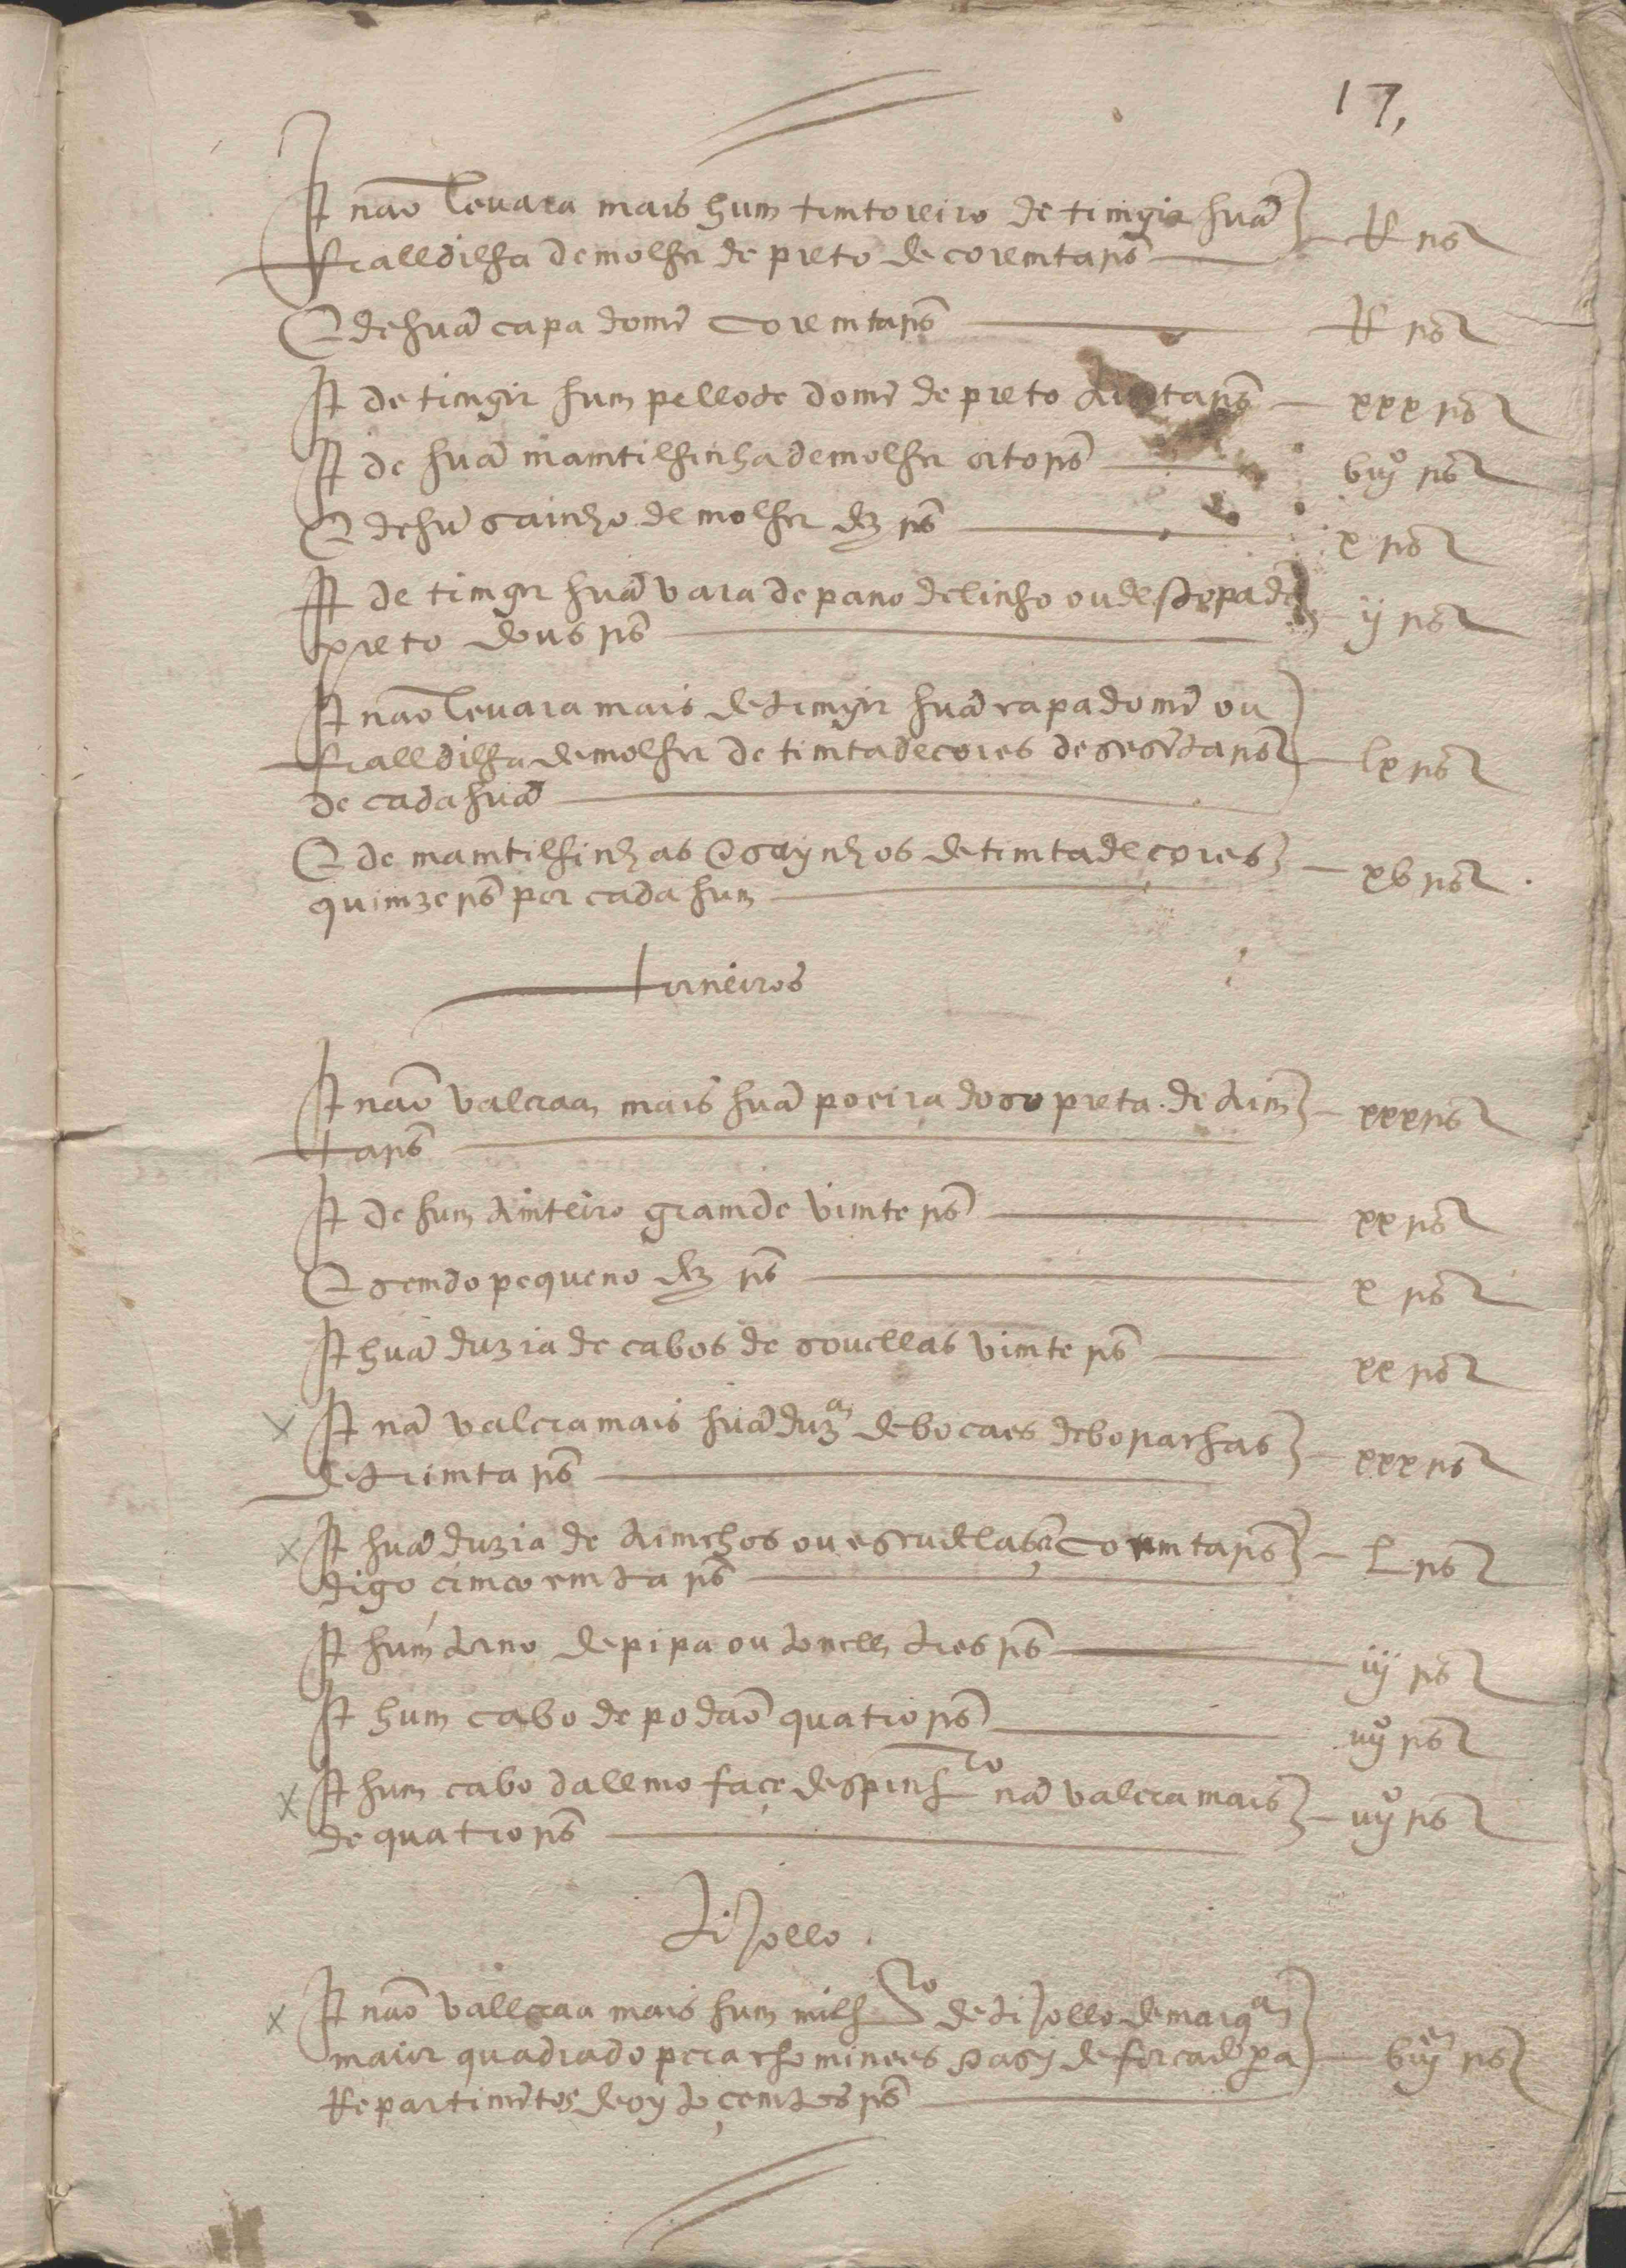 17,
It não levara mais hum timtoreiro de timgir huã
fralldilha de molher de preto de coremta rs R rs
E de huã capa domẽ coremta rs R rs
It de timgir hum pellote domẽ de preto trimta rs xxx rs
It de huã mamtilhinha de molher oito rs biijº rs
E de hũ sainho de molher dez rs x rs
It de timgir huã vara de pano de linho ou destopa de
preto dous rs ij rs
It não levara mais de timgir huã capa domẽ ou
fralldilha de molher de timta de cores de sesẽta rs lx rs
de cada huã
E de mamtilhinhas e saynhos de timta de cores
quimze rs por cada hum xb rs
torneiros
It não valeraa mais huã poeira doso preta de trim
ta rs xxx rs
It de hum tinteiro gramde vimte rs xx rs
E semdo pequeno dez rs x rs
It huã duzia de cabos de sovellas vimte rs xx rs
It nã valera mais huã duzª de bocaes de borachas
de trimta rs xxx rs
It huã duzia de trimchos ou escudellas coremta rs
digo cimcoremta rs L rs
It hum torno de pipa ou tonell tres rs iij rs
It hum cabo de podão quatro rs iiijº rs
It hum cabo dallmofaçe despinhrº nã valera mais
de quatro rs iiijº rs
tijollo
It não valleraa mais hum milhrº de tijollo de marqª
maior quadrado pera chominees e asy de forcado pa
Repartimẽtos de oytoçemtos rs biijᶜ rs